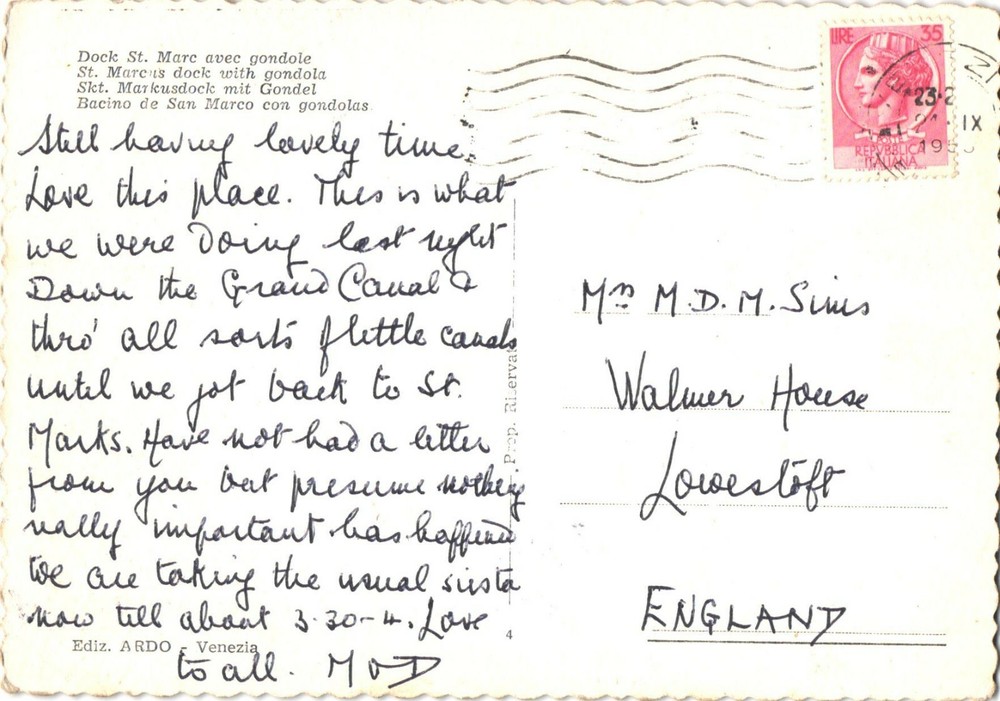 Dock St. Marc avec gondole
St. Marcus dock with gondola
Skt. Markusdock mit Gondel
Bacino de San Marco con gondolas
Still having lovely time.
Love this place. This is what
we were Doing last night
Down the Grand Canal &
thro' all sorts of little canals
until we got back to St.
Marks. Have not had a letter
from you but presume nothing
really important has happened
We are taking the usual siesta
now till about 3.30-4. Love
to all. M & D
Ediz. ARDO - Venezia
4
Prop. Riservata
LIRE 35
REPVBBLICA
ITALIANA
23-2
IX
Mrs M.D.M. Sims
Walmer House
Lowestoft
ENGLAND